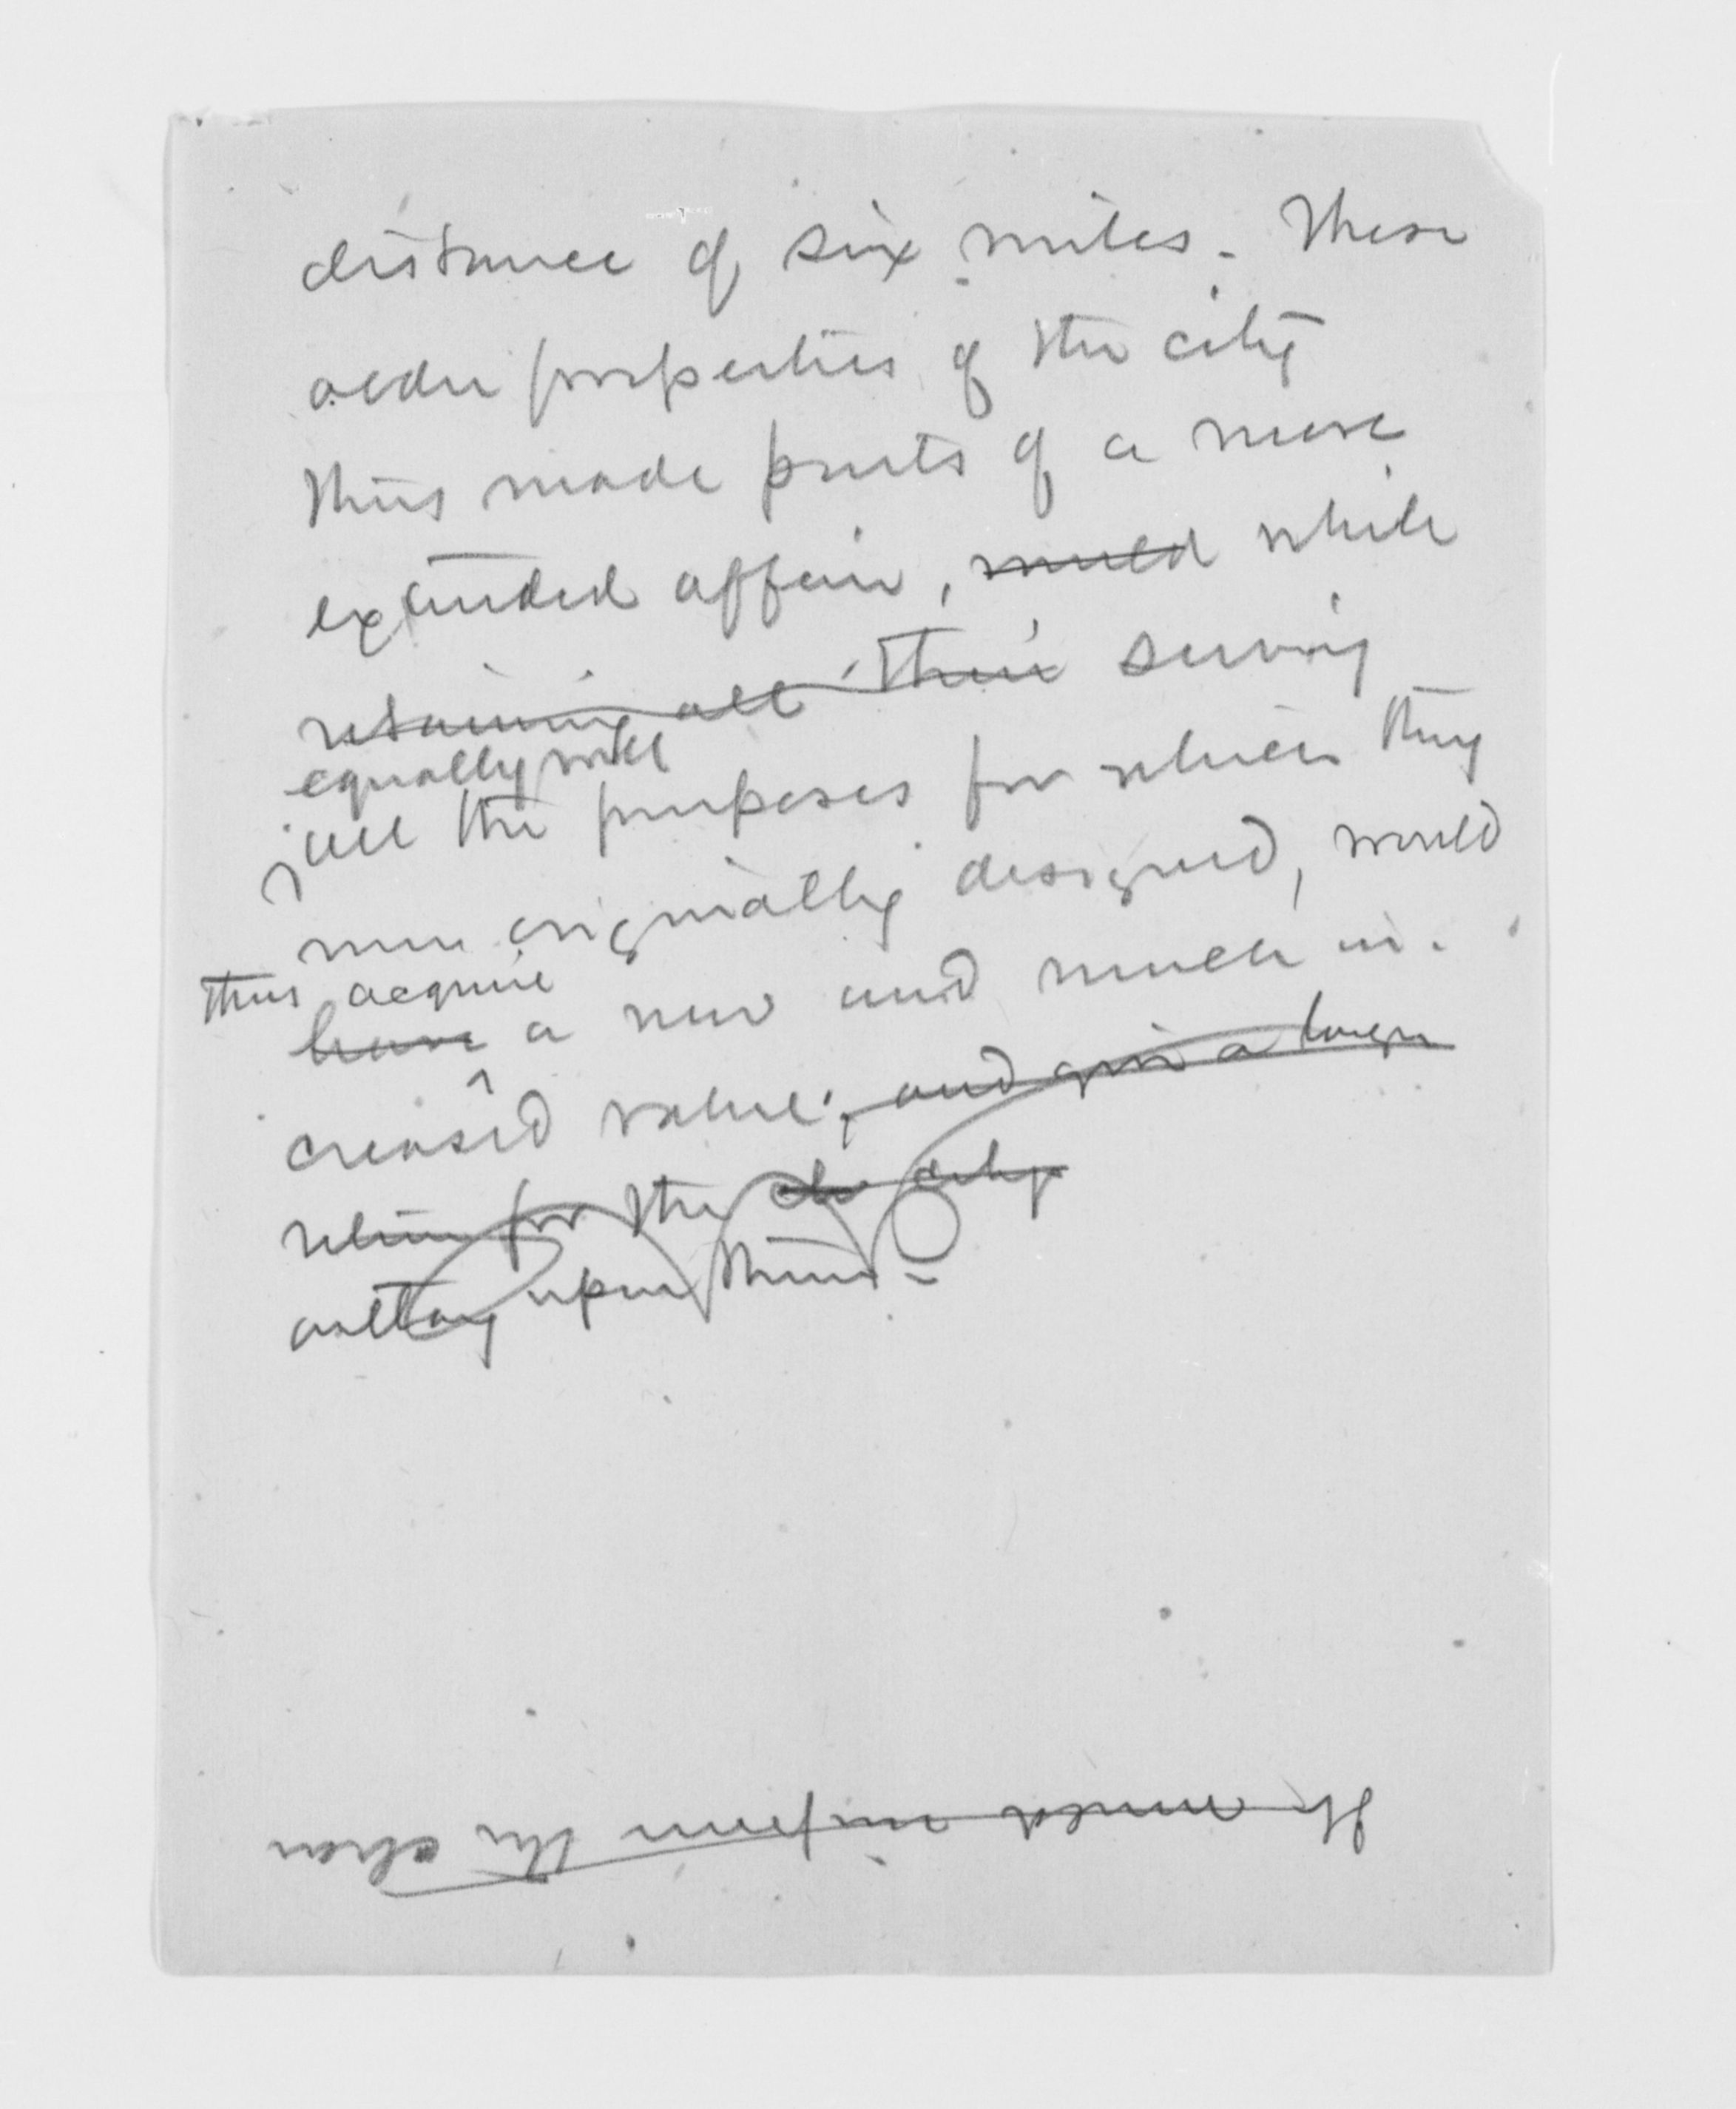 distance of six miles. These
older properties of the city
thus made parts of a more
extended affair, would while
retaining all their serving
equally well
all the purposes for which they
were originally designed, would
thus acquire
have a new and much in-
creased value; and give a larger
return for the old
outlay upon them.
It must the